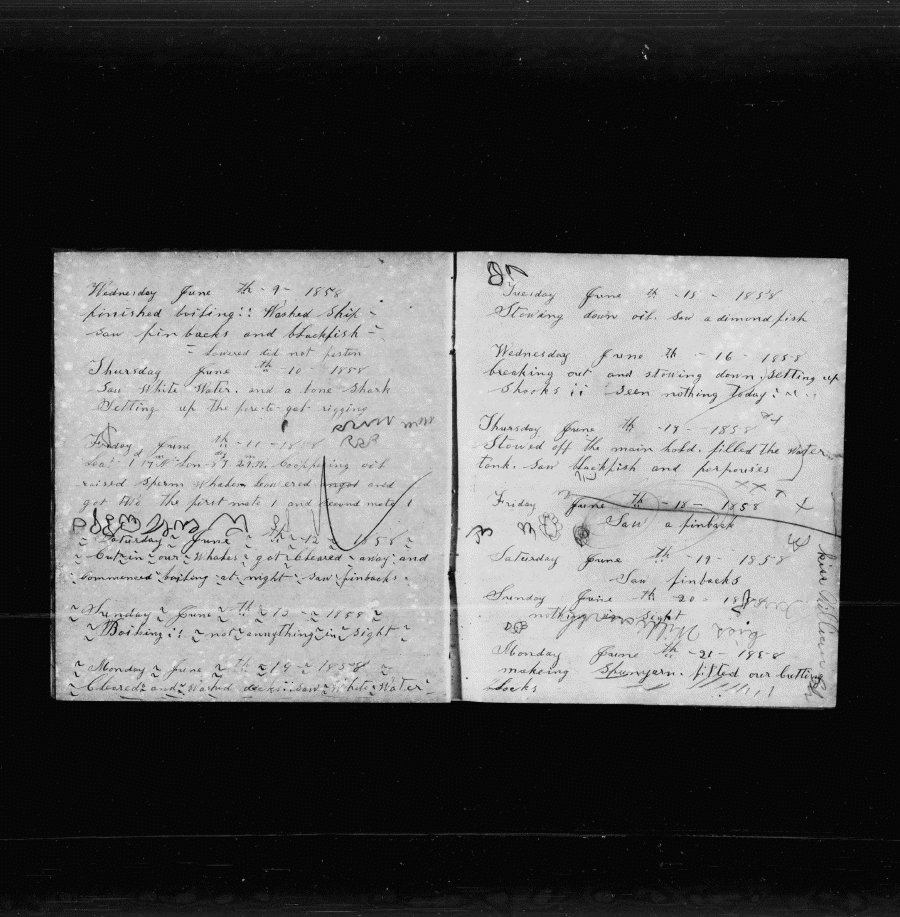 Wednesday June th - 9 - 1858
finished boiling!! Washed Ship -
saw finbacks and blackfish =
= Lowered did not fasten
Thursday June th - 10 - 1858
Saw White Water. and a bone Shark
Setting up the fore-to-gat-rigging
Friday June th - 11 - 1858
Coopering oil
raised Sperm Whales Lowered and
got two the first mate 1 and second mate 1
Saturday June th - 12 - 1858
Cut in our Whales got Cleared away and
commenced boiling at night saw finbacks.
Sunday June th 13 - 1858
Boiling!! not annything in Sight
Monday June th 14 - 1858
Cleared and Washed decks :: saw White Water
Tuesday June th - 15 - 1858
Stowing down oil. Saw a dimond fish
Wednesday June th - 16 - 1858
breaking out and stowing down, Setting up
Shooks ;; Seen nothing today:
Thursday June th - 17 - 1858
Stowed off the main hold. filled the Water
tank. saw blackfish and porpouses
x x x x
Friday June th - 18 - 1858 x
Saw a finback
Saturday June th - 19 - 1858
Saw finbacks
Sunday June th - 20 - 1858
nothing in Sight
Monday June th - 21 - 1858
makeing Spunyarn. fitted our Cutting
blocks